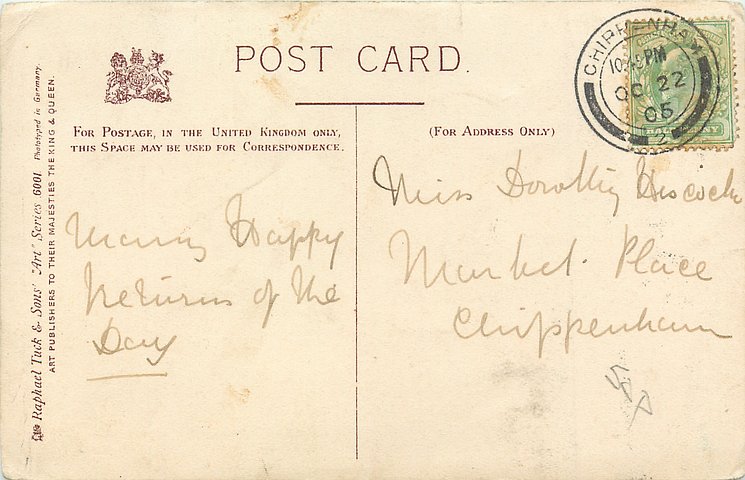 POST CARD.
FOR POSTAGE, IN THE UNITED KINGDOM ONLY,
THIS SPACE MAY BE USED FOR CORRESPONDENCE.
(FOR ADDRESS ONLY)
CHIPPENHAM
PM
OC 22
05
2
HALFPENNY
Many Happy
Returns of the
Day
Miss Dorothy Hiscock
Market Place
Chippenham
Raphael Tuck & Sons' "Art" Series 6001 Phototyped in Germany.
ART PUBLISHERS TO THEIR MAJESTIES THE KING & QUEEN.